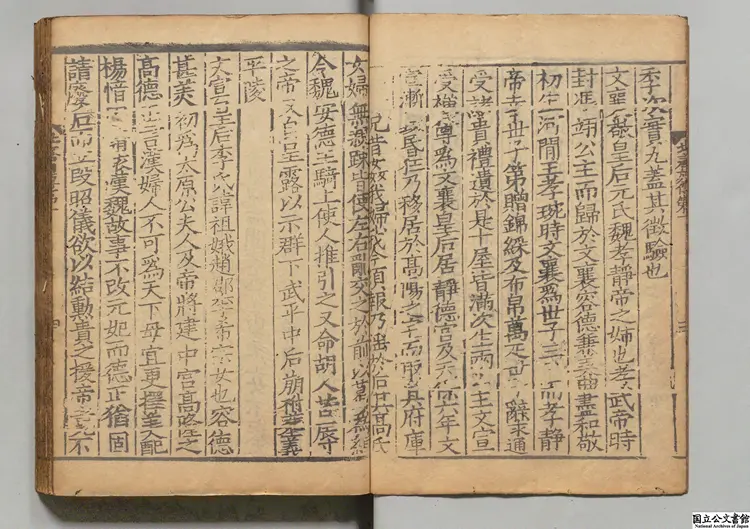 季次賓九蓋其徵驗也
文襄敬皇后元氏魏孝靜帝之姉也孝武帝時
封馮翊公主而歸於文襄容德兼美曲盡和敬
初生河間王孝琬時文襄爲世子三而孝靜
帝幸世子第贈錦綵及布帛萬疋世辭求通
受諸貴禮遺於是十屋皆滿次生兩主文宣
受禪尊爲文襄皇后居靜德宮及天保六年文
宣漸昏狂乃移居於高陽之宅而取其府庫
兄昔姦我婦我今須報乃淫於后其高氏
女婦無親疎皆使左右亂交之於前以葛爲絙
令魏安德主騎上使人推引之又命胡人苦辱
之帝又自呈露以示群下武平中后崩祔葬義
平陵
文宣皇后李氏諱祖娥趙郡李希宗女也容德
甚美初爲太原公夫人及帝將建中宮高隆之
高德正言漢婦人不可爲天下母宜更擇美配
楊愔請依漢魏故事不改元妃而德正猶固
請廢后而立段昭儀欲以結勳貴之援帝竟不
三
国立公文書館
National Archives of Japan